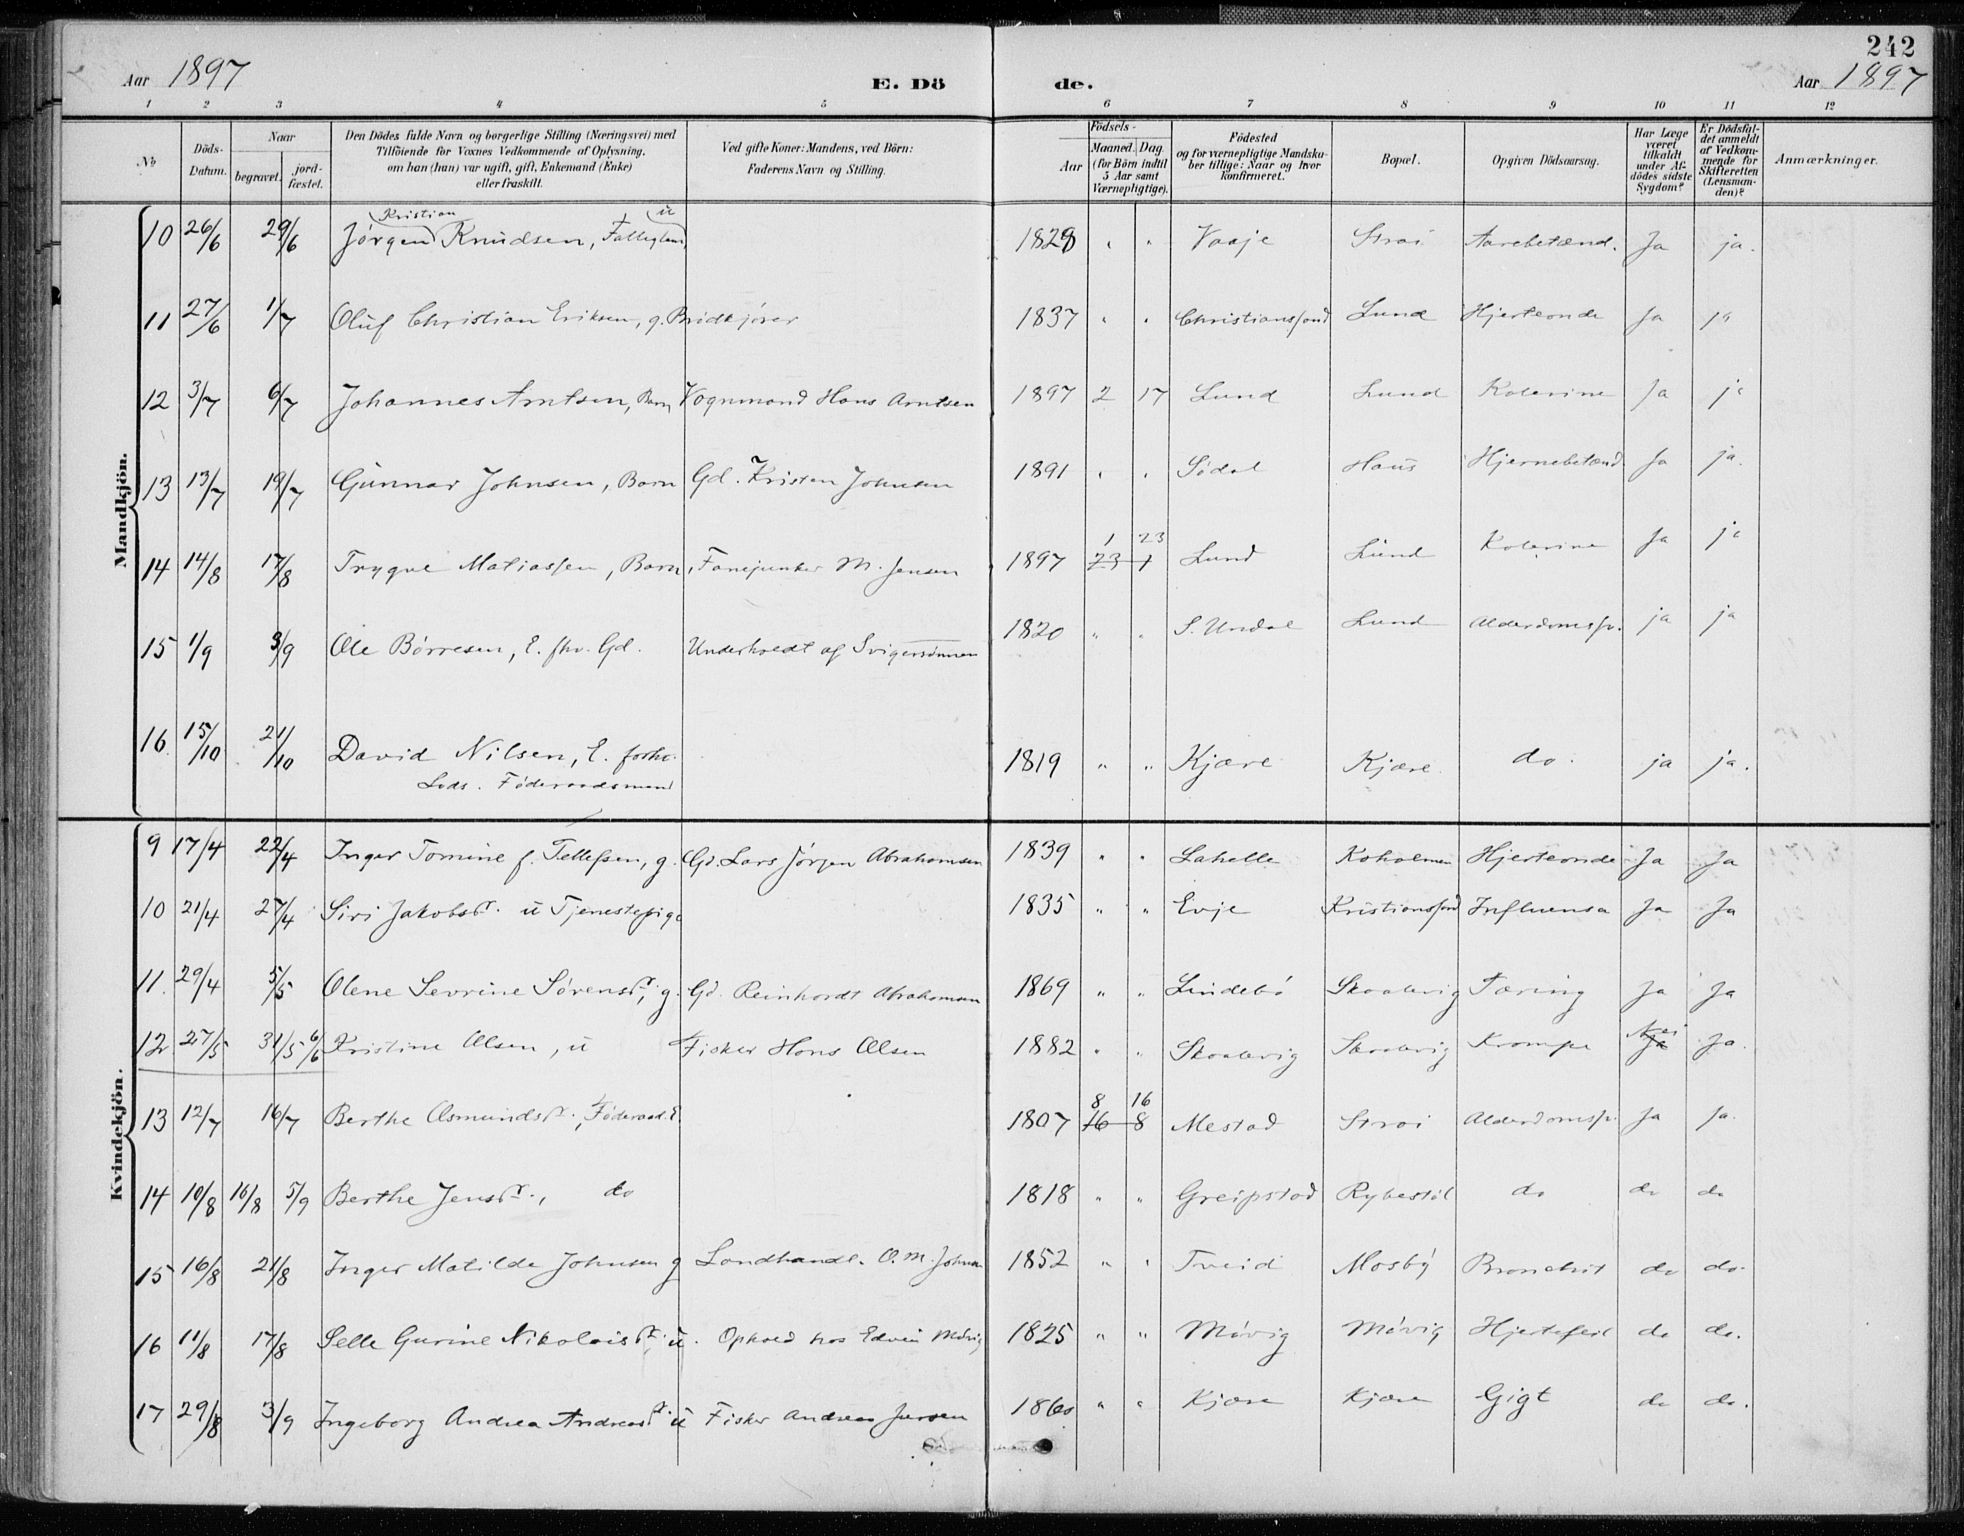 242
Aar 1897 E. Dö de. Aar 1897
1 2 3 4 5 6 7 8 9 10 11 12
No
Döds-Datum.
Naar
begravet.
jord-fæstet.
Den Dödes fulde Navn og borgerlige Stilling (Næringsvei) med
Tilföiende for Voxnes Vedkommende af Oplysning,
om han (hun) var ugift, gift, Enkemand (Enke)
eller fraskilt.
Ved gifte Koner: Mandens, ved Börn:
Faderens Navn og Stilling.
Födsels-
Aar
Maaned. Dag
(for Börn indtil
5 Aar samt
Værnepligtige).
Födested
og for værnepligtige Mandska-
ber tillige: Naar og hvor
konfirmeret.
Bopæl.
Opgiven Dödsaarsag.
Har Læge
været
tilkaldt
under Af-
dödes sidste
Sygdom?
Er Dödsfal-
det anmeldt
af Vedkom-
mende for
Skifteretten
(Lensman-
den)?
Anmærkninger.
Mandkjön.
Kristian u
10 26/6 29/6 Jørgen Knudsen, Fattiglem 1828 " " Vaaje Strai Aarebetænd. Ja ja.
11 27/6 1/7 Oluf Christian Eriksen, g. Brødkjører 1837 " " Christianssand Lund Hjerteonde Ja ja
12 3/7 6/7 Johannes Arntsen, Barn Vognmand Hans Arntsen 1897 2 17 Lund Lund Kolerine Ja ja
13 13/7 19/7 Gunnar Johnsen, Barn Gd. Kristen Johnsen 1891 " " Södal Haus Hjernebetænd Ja ja.
1 23
14 14/8 17/8 Trygve Matiassen, Barn, Fanejunker M. Jensen 1897 23 1 Lund Lund Kolerine Ja ja
15 1/9 3/9 Ole Børresen, E. fhv. Gd. Underholdt af Svigersønnen 1820 " " S. Undal Lund Alderdomssv. ja ja
16 15/10 21/10 David Nilsen, E. forhv. 1819 " " Kjære Kjære do. ja ja.
Lods. Föderaadsmand
Kvindekjön.
9 17/4 22/4 Inger Tomine f. Tellefsen, g. Gd. Lars Jørgen Abrahamsen 1839 " " Lahelle Koholmen Hjerteonde Ja Ja
10 21/4 27/4 Siri Jakobsdr. u Tjenestepige 1835 " " Evje Kristianssand Influensa Ja Ja
11 29/4 5/5 Olene Sevrine Sørensdr, g. Gd. Reinhardt Abrahamsen 1869 " " Lindebö Skaalevig Tæring Ja Ja
12 27/5 31/5 6/6 Kristine Olsen, u Fisker Hans Olsen 1882 " " Skaalevig Skaalevig Krampe Nei Ja Ja.
8 16
13 12/7 16/7 Berthe Asmundsdr., Föderaad. E. 1807 16 8 Mestad Strai Alderdomssv. Ja Ja.
14 10/8 16/8 5/9 Berthe Jensdr., do 1818 " " Greipstad Rybestöl do do do
15 16/8 21/8 Inger Matilde Johnsen g Landhandl. O. M. Johnsen 1852 " " Tveid Mosby Bronchit do do.
16 11/8 17/8 Selle Gurine Nikolaisdr. u. Ophold hos Edvin Møvig 1825 " " Møvig Møvig Hjertefeil do do.
17 29/8 3/9 Ingeborg Andrea Andreasdr. u Fisker Andreas Jensen 1860 " " Kjære Kjære Gigt do do.